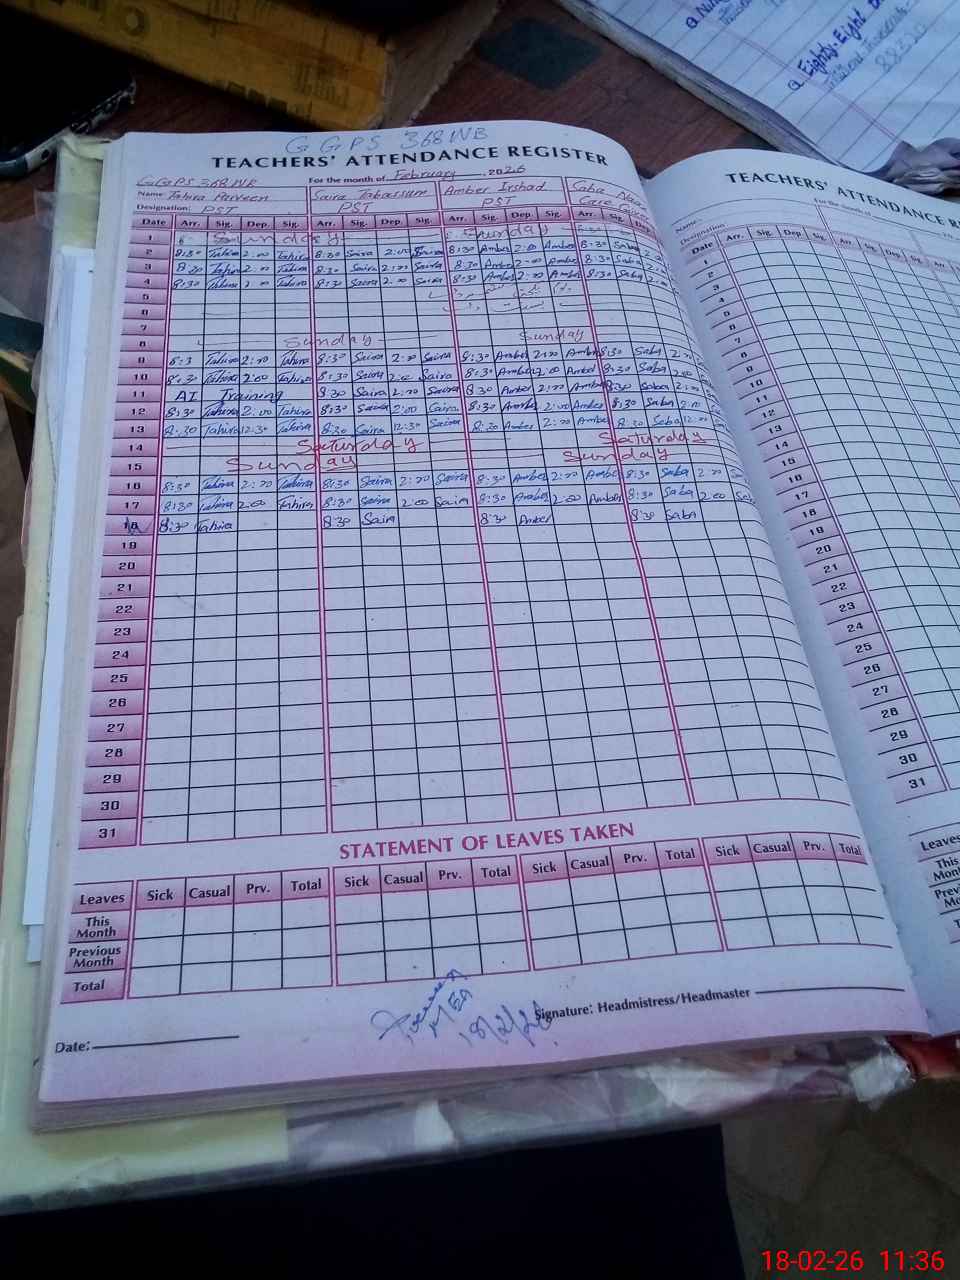 G G P S 368 WB
TEACHERS' ATTENDANCE REGISTER
GGPS 368 WB For the month of February, 2026
Name: Tahira Parveen Saira Tabassum Amber Irshad Saba
Designation: PST PST PST Care
Date Arr. Sig. Dep. Sig. Arr. Sig. Dep. Sig. Arr. Sig. Dep. Sig. Arr. Sig. Dep.
1 Sunday Sunday
2 8:30 Tahira 2:00 Tahira 8:30 Saira 2:00 Saira 8:30 Amber 2:00 Amber 8:30 Saba 2:00
3 8:30 Tahira 2:00 Tahira 8:30 Saira 2:00 Saira 8:30 Amber 2:00 Amber 8:30 Saba 2:00
4 8:30 Tahira 2:00 Tahira 8:30 Saira 2:00 Saira 8:30 Amber 2:00 Amber 8:30 Saba 2:00
5
6
7
8 Sunday Sunday
9 8:3 Tahira 2:00 Tahira 8:30 Saira 2:00 Saira 8:30 Amber 2:00 Amber 8:30 Saba 2:00
10 8:30 Tahira 2:00 Tahira 8:30 Saira 2:00 Saira 8:30 Amber 2:00 Amber 8:30 Saba 2:00
11 AI Training 8:30 Saira 2:00 Saira 8:30 Amber 2:00 Amber 8:30 Saba 2:00
12 8:30 Tahira 2:00 Tahira 8:30 Saira 2:00 Saira 8:30 Amber 2:00 Amber 8:30 Saba 2:00
13 8:30 Tahira 12:30 Tahira 8:30 Saira 12:30 Saira 8:30 Amber 2:00 Amber 8:30 Saba 12:30
14 Saturday Saturday
15 Sunday Sunday
16 8:30 Tahira 2:00 Tahira 8:30 Saira 2:00 Saira 8:30 Amber 2:00 Amber 8:30 Saba 2:00
17 8:30 Tahira 2:00 Tahira 8:30 Saira 2:00 Saira 8:30 Amber 2:00 Amber 8:30 Saba 2:00 Sab
18 8:30 Tahira 8:30 Saira 8:30 Amber 8:30 Saba
19
20
21
22
23
24
25
26
27
28
29
30
31
STATEMENT OF LEAVES TAKEN
Leaves Sick Casual Prv. Total Sick Casual Prv. Total Sick Casual Prv. Total Sick Casual Prv. Total
This Month
Previous Month
Total
MEA
18/2/26
Signature: Headmistress/Headmaster
Date:
TEACHERS' ATTENDANCE R
Name: For the month of
Designation
Date Arr. Sig. Dep Sig. Arr. Sig. Dep. Sig. Arr
1
2
3
4
5
6
7
8
9
10
11
12
13
14
15
16
17
18
19
20
21
22
23
24
25
26
27
28
29
30
31
Leaves
This
Mon
Prev
Mo
T
a. Eighty-Eight
88320
18-02-26 11:36